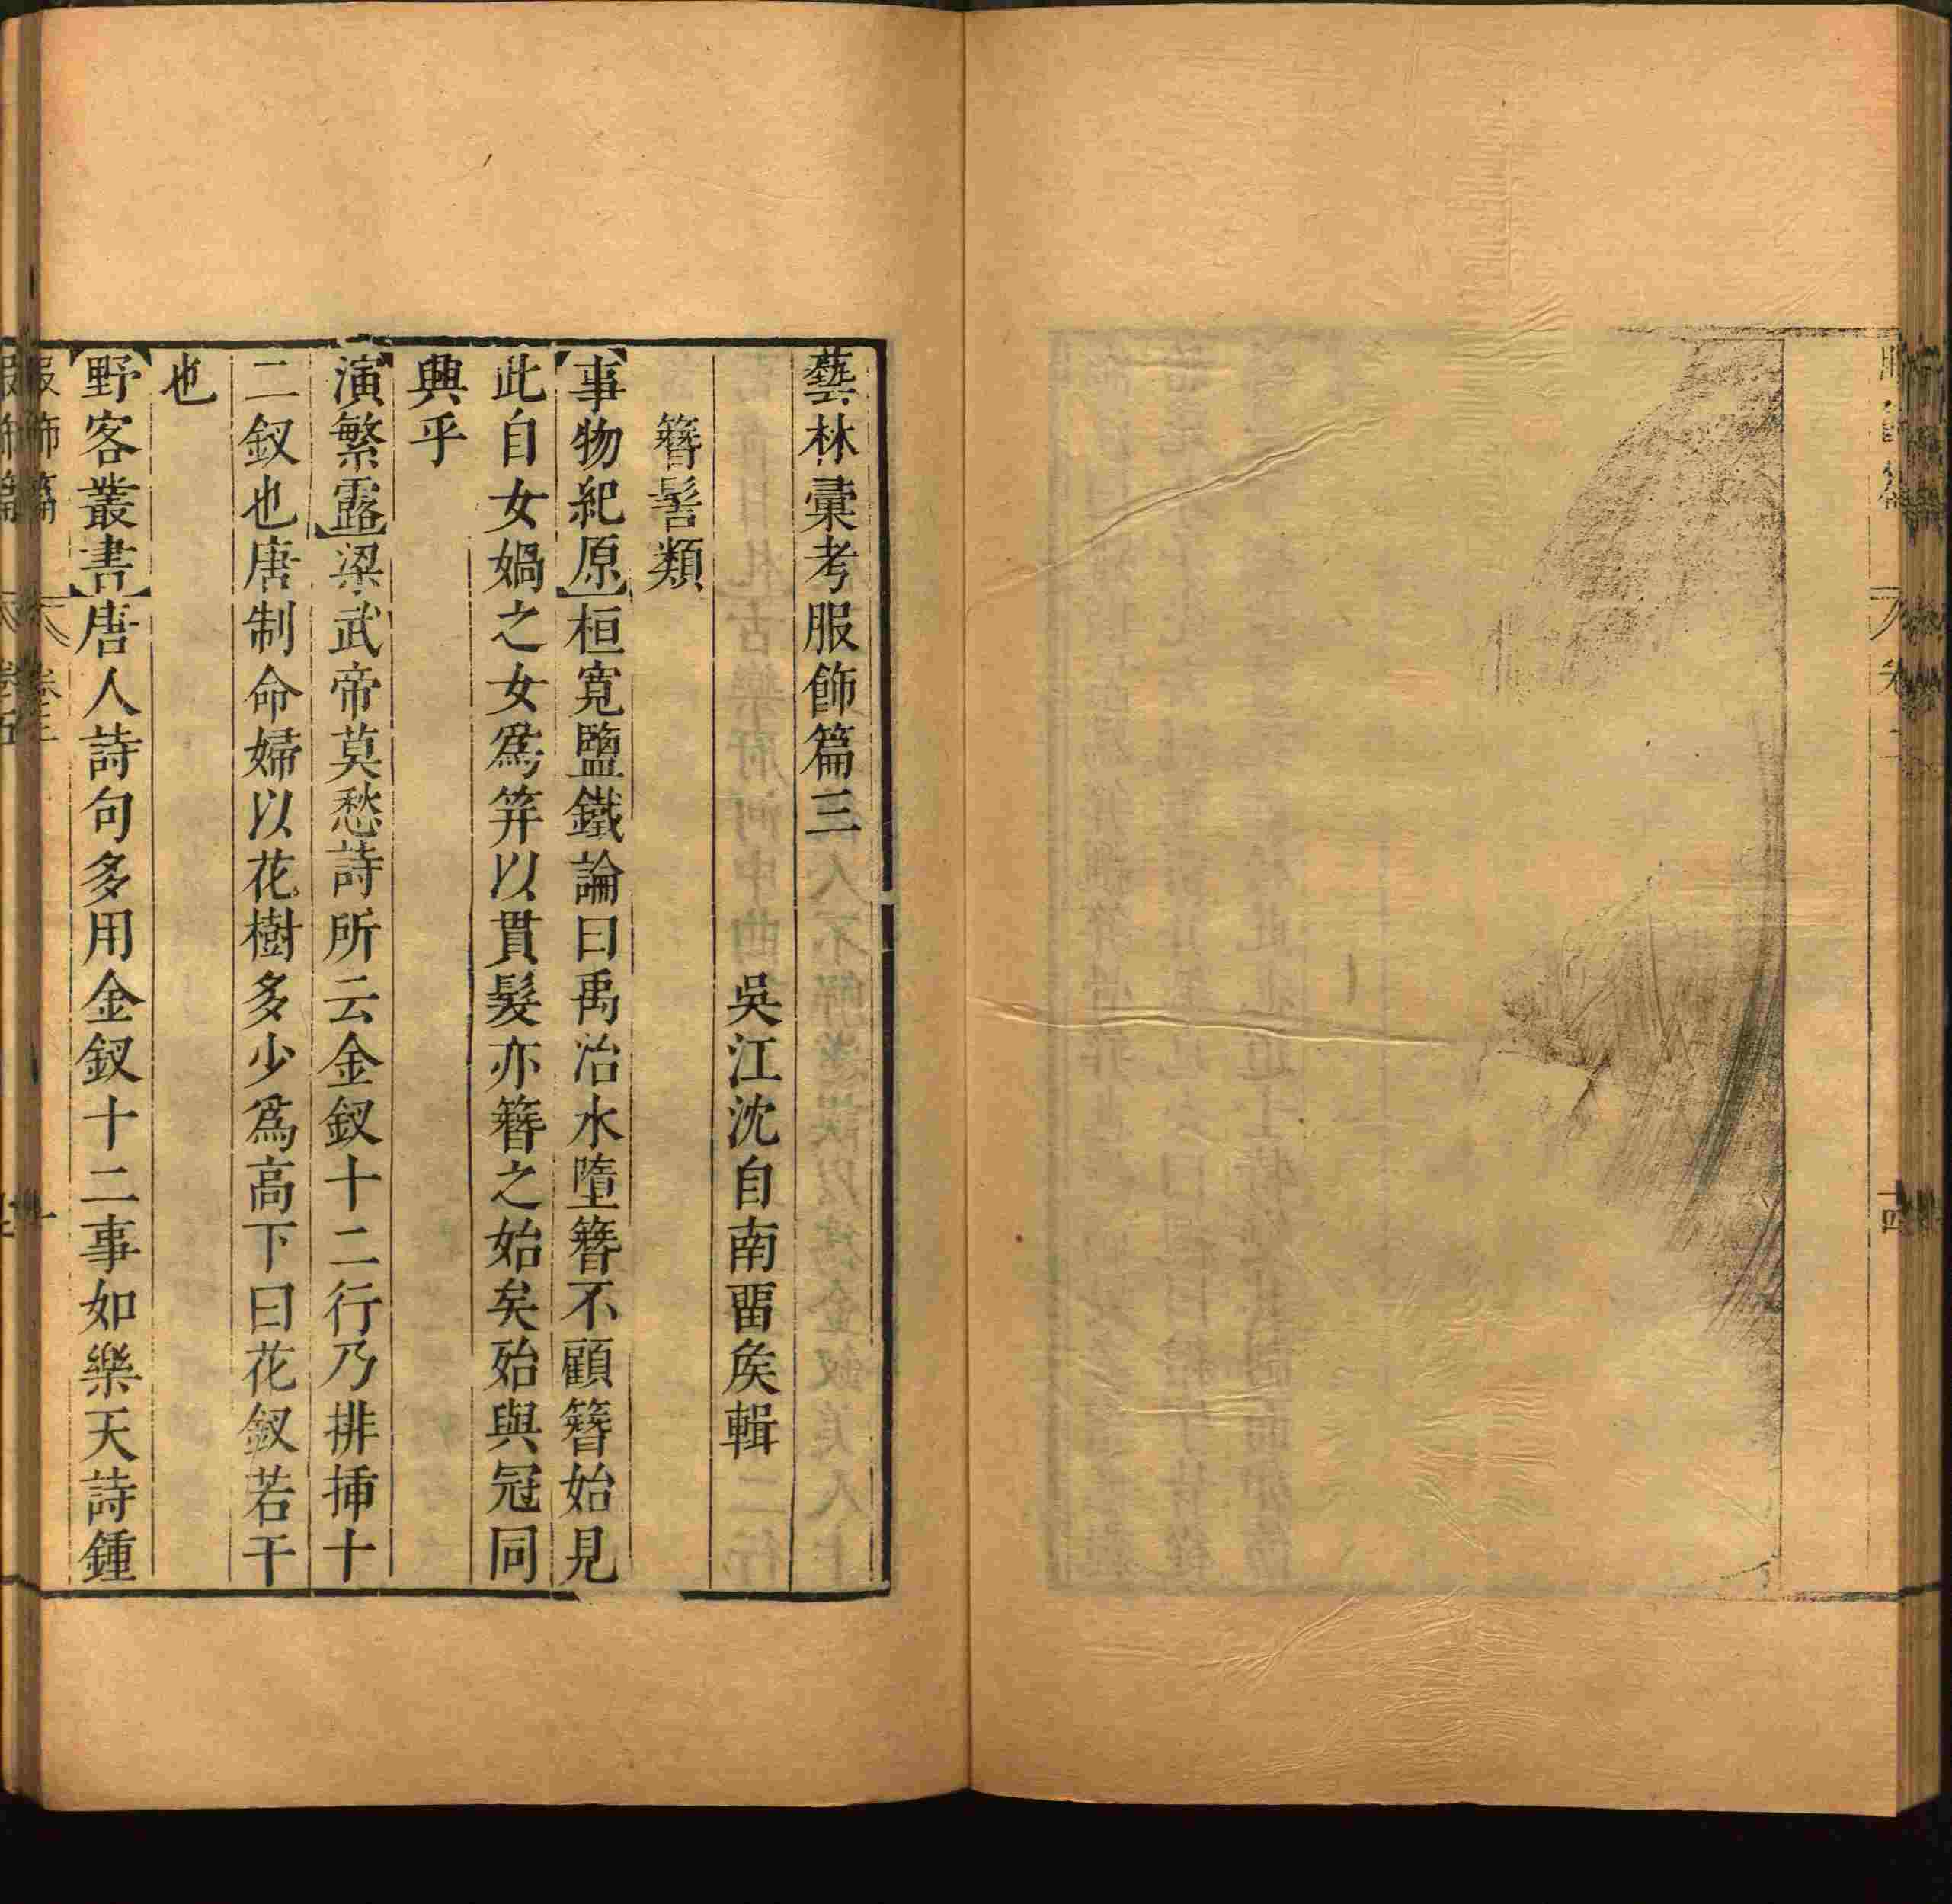 藝林彙考服飾篇三
吳江沈自南畱矦輯
簪髻類
【事物紀原】桓寬鹽鐵論曰禹治水墮簪不顧簪始見
此自女媧之女爲笄以貫髮亦簪之始矣殆與冠同
興乎
【演繁露】梁武帝莫愁詩所云金釵十二行乃排揷十
二釵也唐制命婦以花樹多少爲高下曰花釵若干
也
【野客叢書】唐人詩句多用金釵十二事如樂天詩鍾
服飾篇 卷三 一